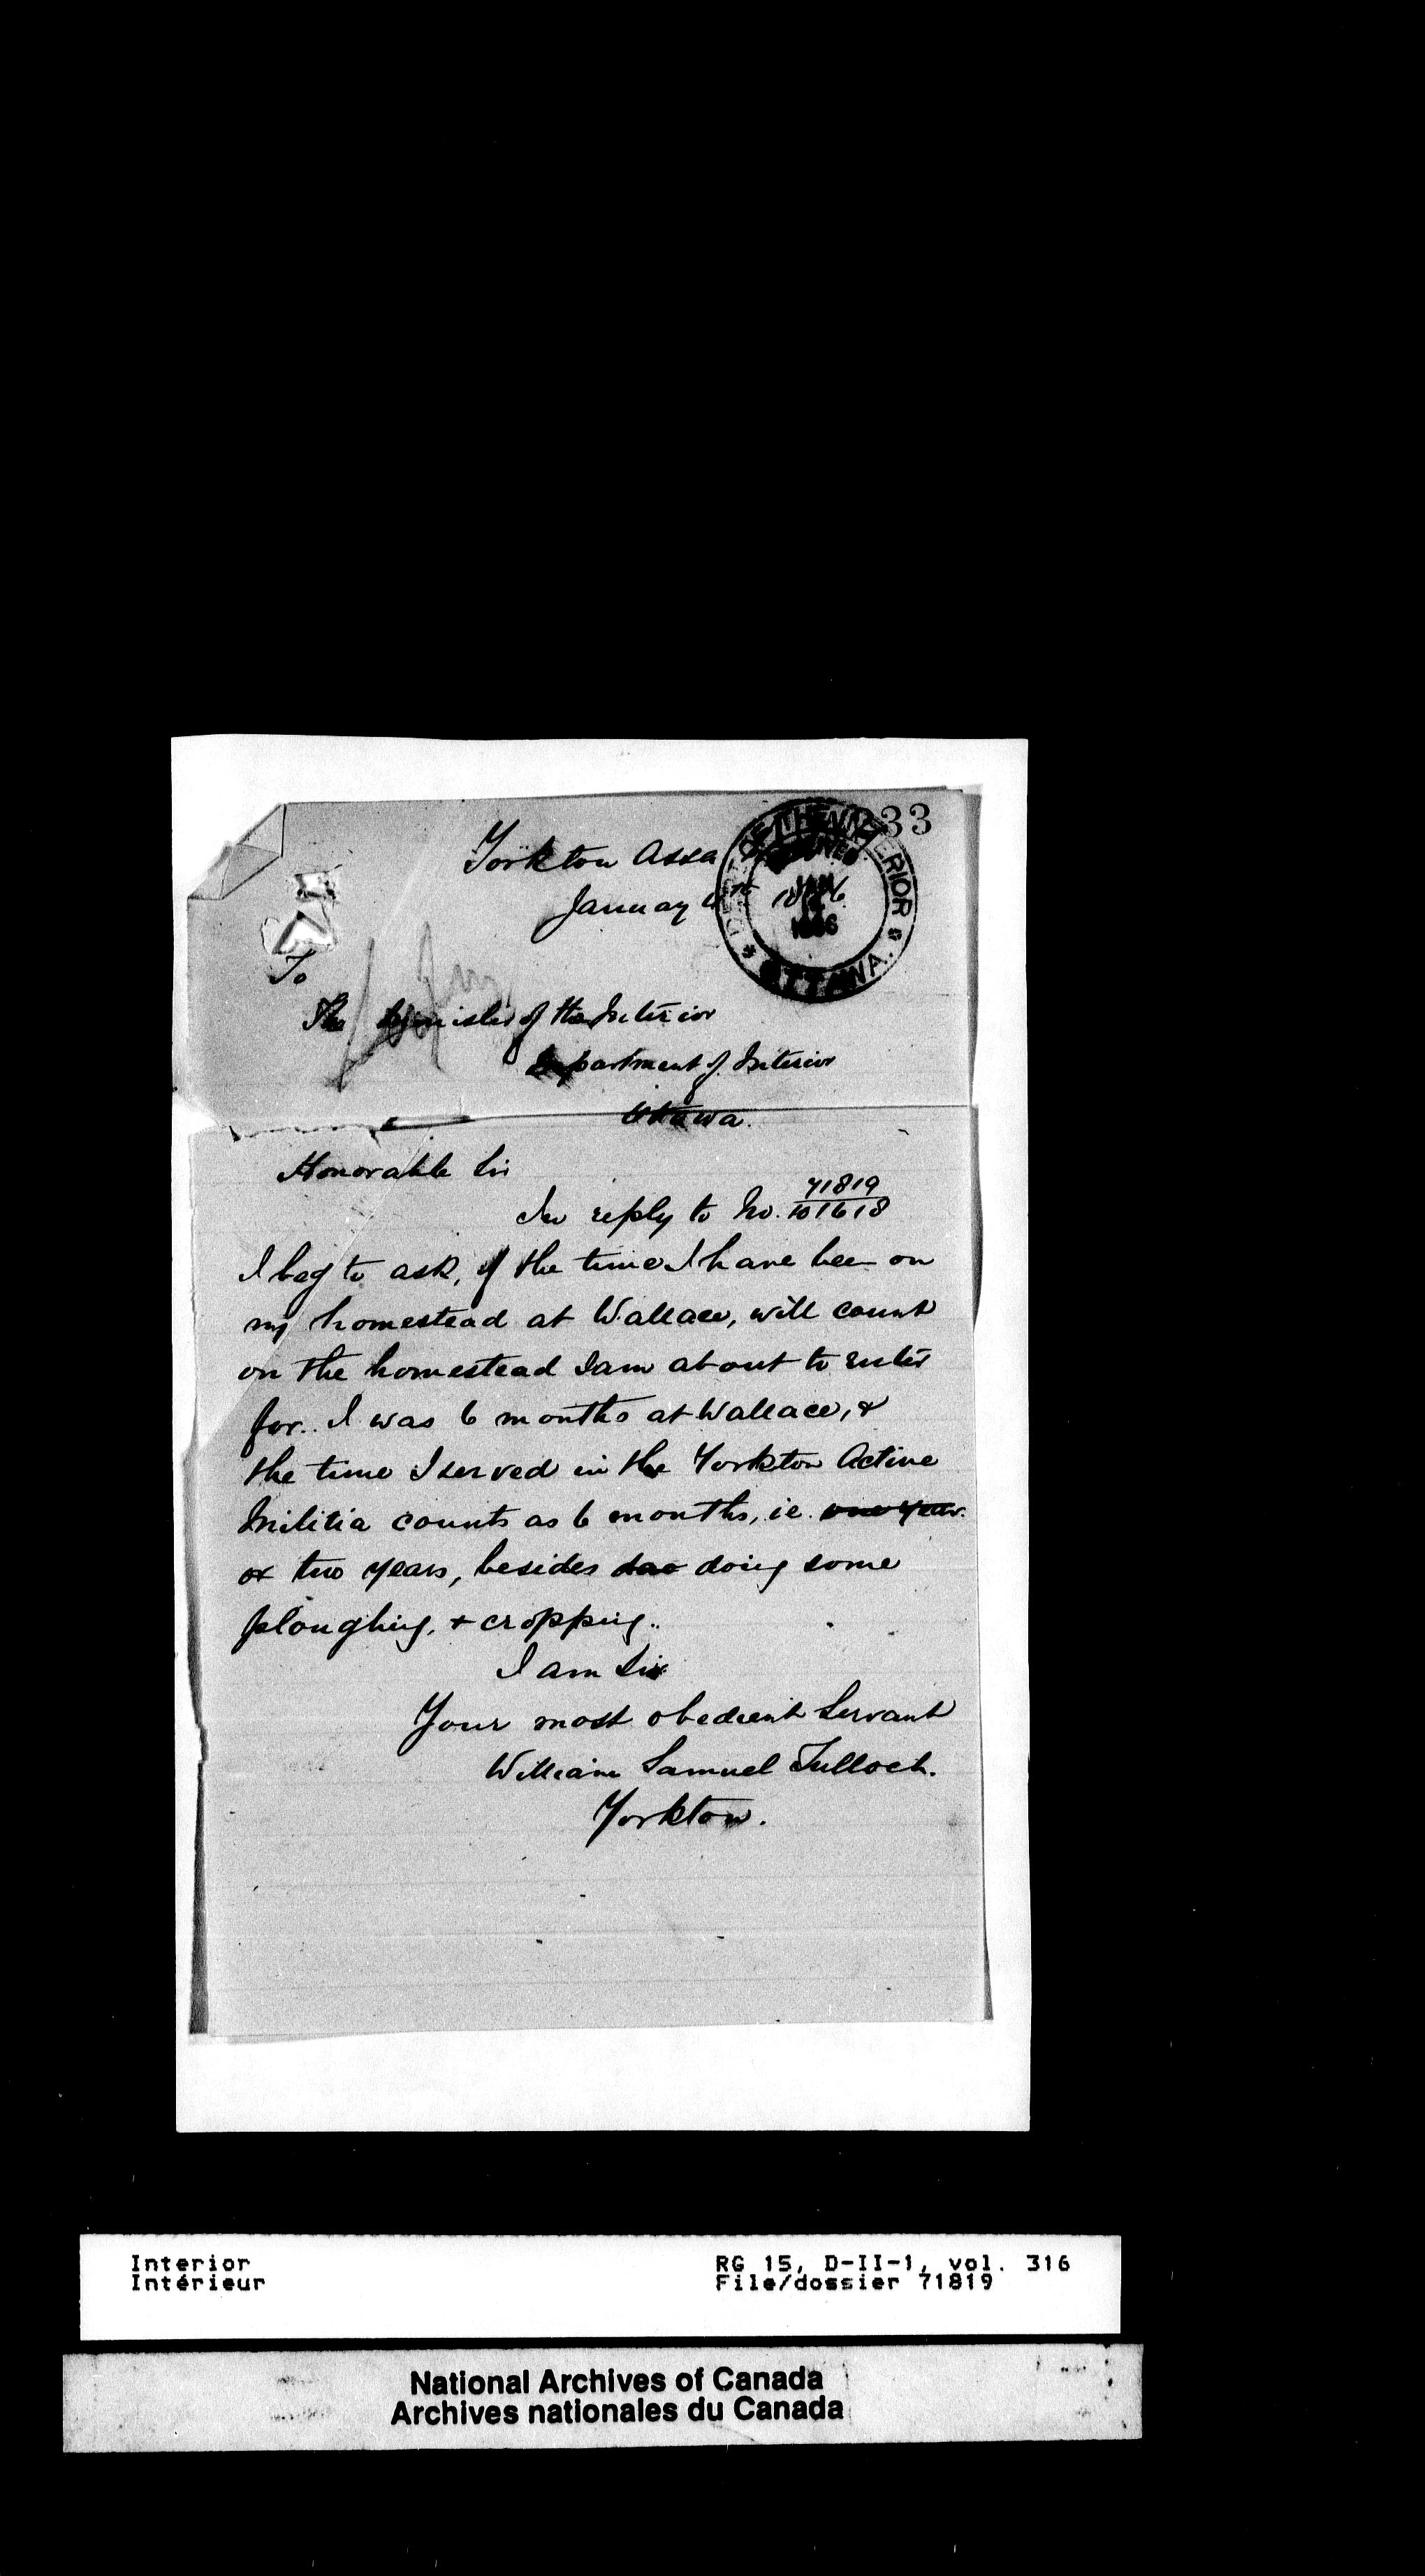 33
Yorkton Assa
January 1886
DEPT OF THE INTERIOR
JAN
1886
OTTAWA.
To
The Minister of the Interior
Department of Interior
Ottawa.
Honorable Sir
In reply to No. 71819/101618
I beg to ask, if the time I have been on
my homestead at Wallace, will count
on the homestead I am about to enter
for.. I was 6 months at Wallace, &
the time I served in the Yorkton Active
Militia counts as 6 months, ie. one year.
or two years, besides doing some
ploughing, + cropping..
I am Sir
Your most obedient Servant
William Samuel Tulloch.
Yorkton.
Interior
Intérieur
RG 15, D-II-1, vol. 316
File/dossier 71819
National Archives of Canada
Archives nationales du Canada